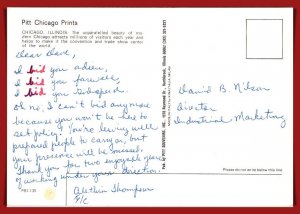 Pitt Chicago Prints
CHICAGO, ILLINOIS: The unparalleled beauty of mo-
dern Chicago attracts millions of visitors each year and
helps to make it the convention and trade show center
of the world
Dear Dave,
I bid you adieu,
I bid you farewell,
I bid you Godspeed.
Oh no, I can't bid anymore
because you won't be here to
set policy! You're leaving well
prepared people to carry on, but
your presence will be missed.
Thank you for two enjoyable years
of working under your direction.
Blethin Thompson
David B. Nilson
Director
Industrial Marketing
Place postage on or below line